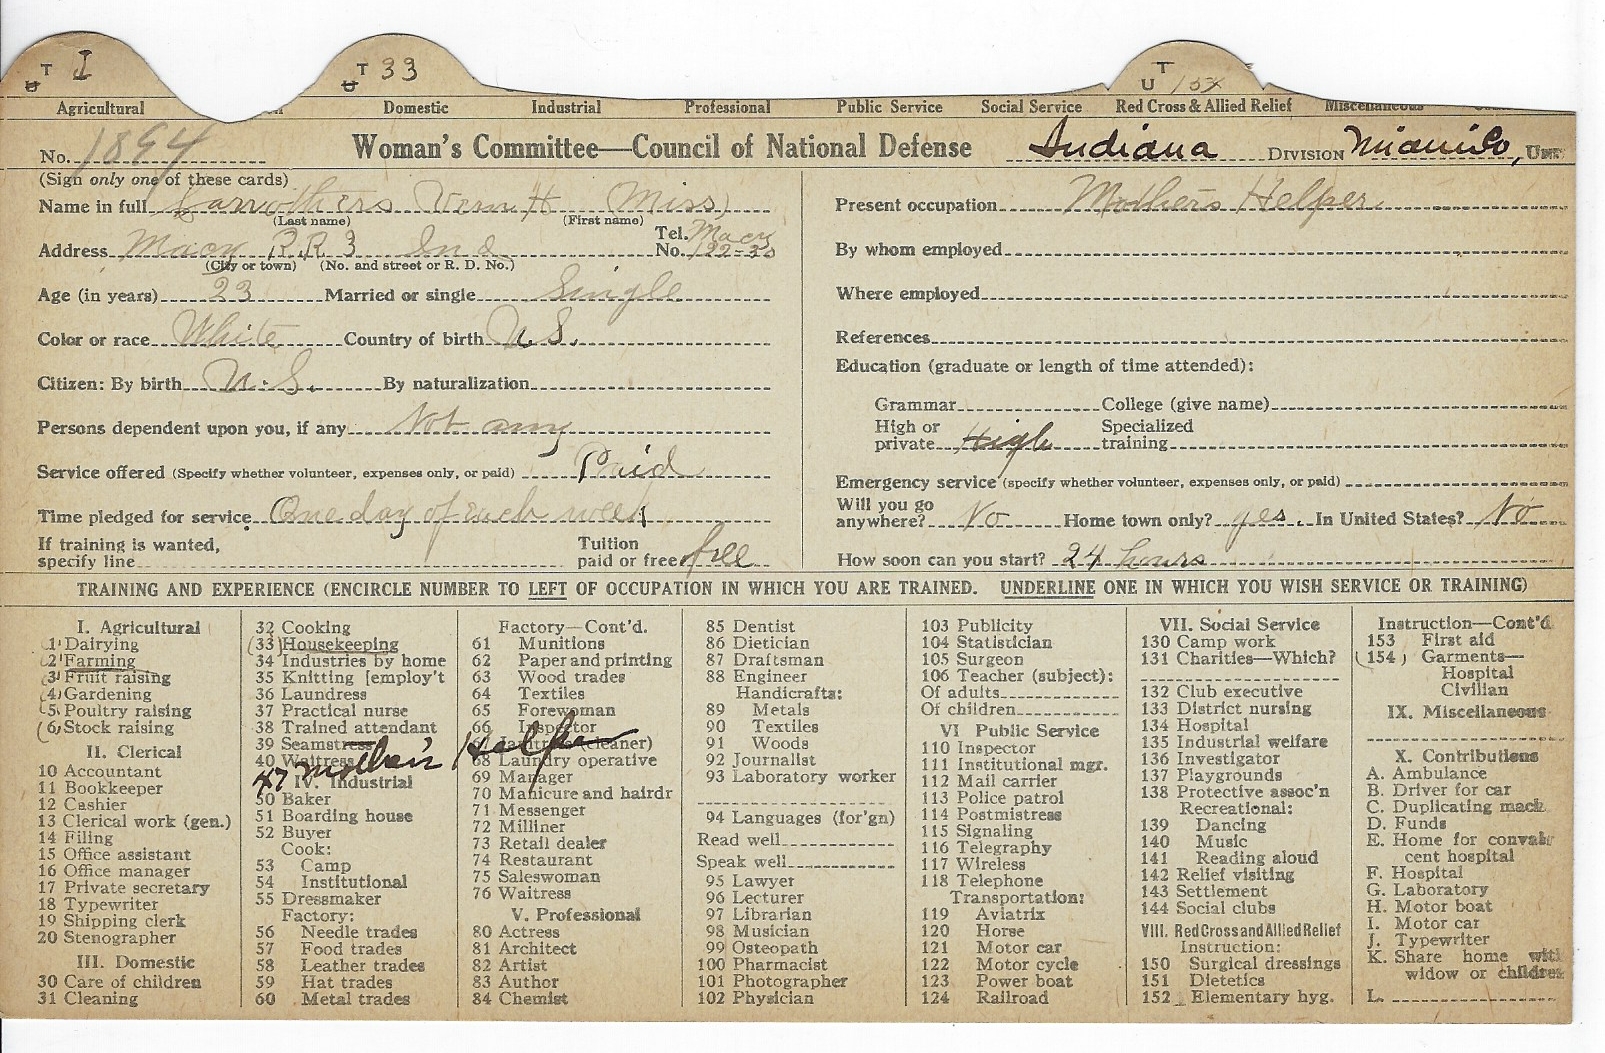 T U I
T U 33
T U 154
Agricultural Domestic Industrial Professional Public Service Social Service Red Cross & Allied Relief Miscellaneous
No. 1894 Woman's Committee—Council of National Defense Indiana DIVISION Miami Co, UNIT
(Sign only one of these cards)
Name in full Carrothers Vern H (Miss)
(Last name) (First name)
Address Macy R.R. 3 Ind Tel. No. Macy 122-30
(City or town) (No. and street or R. D. No.)
Age (in years) 23 Married or single Single
Color or race White Country of birth U.S.
Citizen: By birth U.S. By naturalization
Persons dependent upon you, if any Not any
Service offered (Specify whether volunteer, expenses only, or paid) Paid
Time pledged for service One day of each week
If training is wanted, specify line Tuition paid or free free
Present occupation Mothers Helper
By whom employed
Where employed
References
Education (graduate or length of time attended):
Grammar College (give name)
High or private High Specialized training
Emergency service (specify whether volunteer, expenses only, or paid)
Will you go anywhere? No Home town only? yes. In United States? No
How soon can you start? 24 hours
TRAINING AND EXPERIENCE (ENCIRCLE NUMBER TO LEFT OF OCCUPATION IN WHICH YOU ARE TRAINED. UNDERLINE ONE IN WHICH YOU WISH SERVICE OR TRAINING)
I. Agricultural
(1) Dairying
(2) Farming
(3) Fruit raising
(4) Gardening
(5) Poultry raising
(6) Stock raising
II. Clerical
10 Accountant
11 Bookkeeper
12 Cashier
13 Clerical work (gen.)
14 Filing
15 Office assistant
16 Office manager
17 Private secretary
18 Typewriter
19 Shipping clerk
20 Stenographer
III. Domestic
30 Care of children
31 Cleaning
32 Cooking
(33) Housekeeping
34 Industries by home
35 Knitting [employ't
36 Laundress
37 Practical nurse
38 Trained attendant
39 Seamstress
40 Waitress
47 Mother's Helper
IV. Industrial
50 Baker
51 Boarding house
52 Buyer
Cook:
53 Camp
54 Institutional
55 Dressmaker
Factory:
56 Needle trades
57 Food trades
58 Leather trades
59 Hat trades
60 Metal trades
Factory—Cont'd.
61 Munitions
62 Paper and printing
63 Wood trades
64 Textiles
65 Forewoman
66 Inspector
67 Janitress (cleaner)
68 Laundry operative
69 Manager
70 Manicure and hairdr
71 Messenger
72 Milliner
73 Retail dealer
74 Restaurant
75 Saleswoman
76 Waitress
V. Professional
80 Actress
81 Architect
82 Artist
83 Author
84 Chemist
85 Dentist
86 Dietician
87 Draftsman
88 Engineer
Handicrafts:
89 Metals
90 Textiles
91 Woods
92 Journalist
93 Laboratory worker
94 Languages (for'gn)
Read well
Speak well
95 Lawyer
96 Lecturer
97 Librarian
98 Musician
99 Osteopath
100 Pharmacist
101 Photographer
102 Physician
103 Publicity
104 Statistician
105 Surgeon
106 Teacher (subject):
Of adults
Of children
VI Public Service
110 Inspector
111 Institutional mgr.
112 Mail carrier
113 Police patrol
114 Postmistress
115 Signaling
116 Telegraphy
117 Wireless
118 Telephone
Transportation:
119 Aviatrix
120 Horse
121 Motor car
122 Motor cycle
123 Power boat
124 Railroad
VII. Social Service
130 Camp work
131 Charities—Which?
132 Club executive
133 District nursing
134 Hospital
135 Industrial welfare
136 Investigator
137 Playgrounds
138 Protective assoc'n
Recreational:
139 Dancing
140 Music
141 Reading aloud
142 Relief visiting
143 Settlement
144 Social clubs
VIII. Red Cross and Allied Relief
Instruction:
150 Surgical dressings
151 Dietetics
152 Elementary hyg.
Instruction—Cont'd
153 First aid
(154) Garments—
Hospital
Civilian
IX. Miscellaneous
X. Contributions
A. Ambulance
B. Driver for car
C. Duplicating mach.
D. Funds
E. Home for convales
cent hospital
F. Hospital
G. Laboratory
H. Motor boat
I. Motor car
J. Typewriter
K. Share home with
widow or children
L.